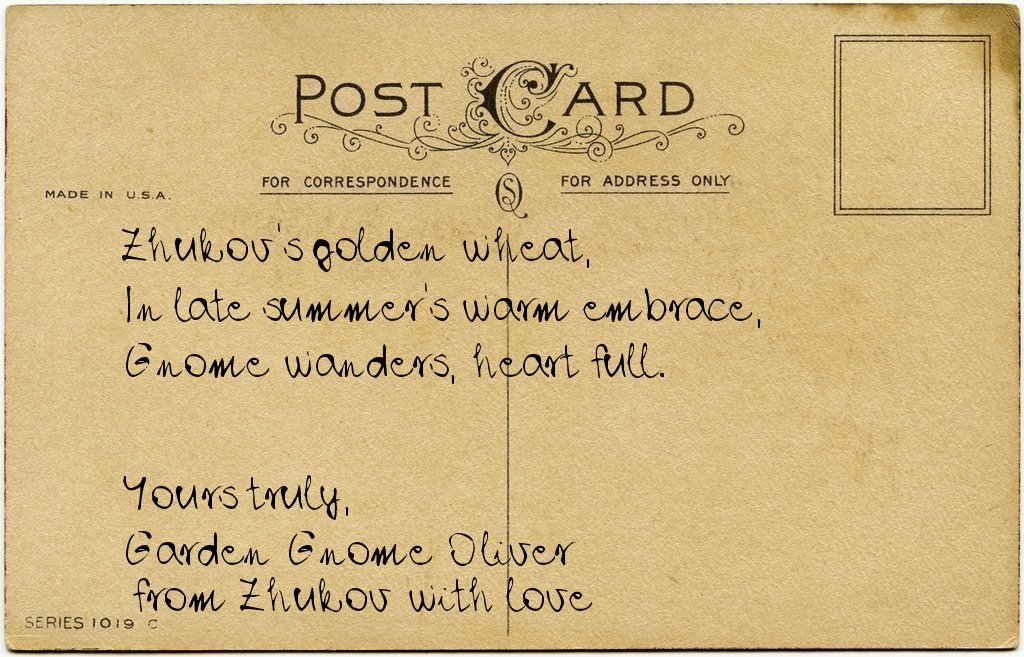 POST CARD
FOR CORRESPONDENCE
FOR ADDRESS ONLY
MADE IN U.S.A.
Zhukov's golden wheat,
In late summer's warm embrace,
Gnome wanders, heart full.
Yours truly,
Garden Gnome Oliver
from Zhukov with love
SERIES 1019 C